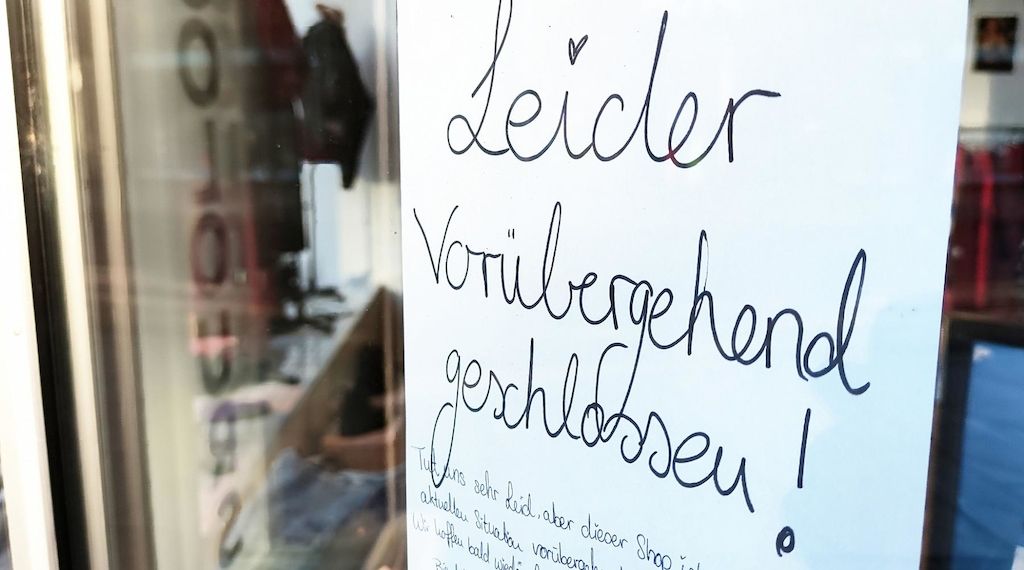 Leider
Vorübergehend
geschlossen!
Tut uns sehr Leid, aber dieser Shop
aktuellen Situation
Wir hoffen bald